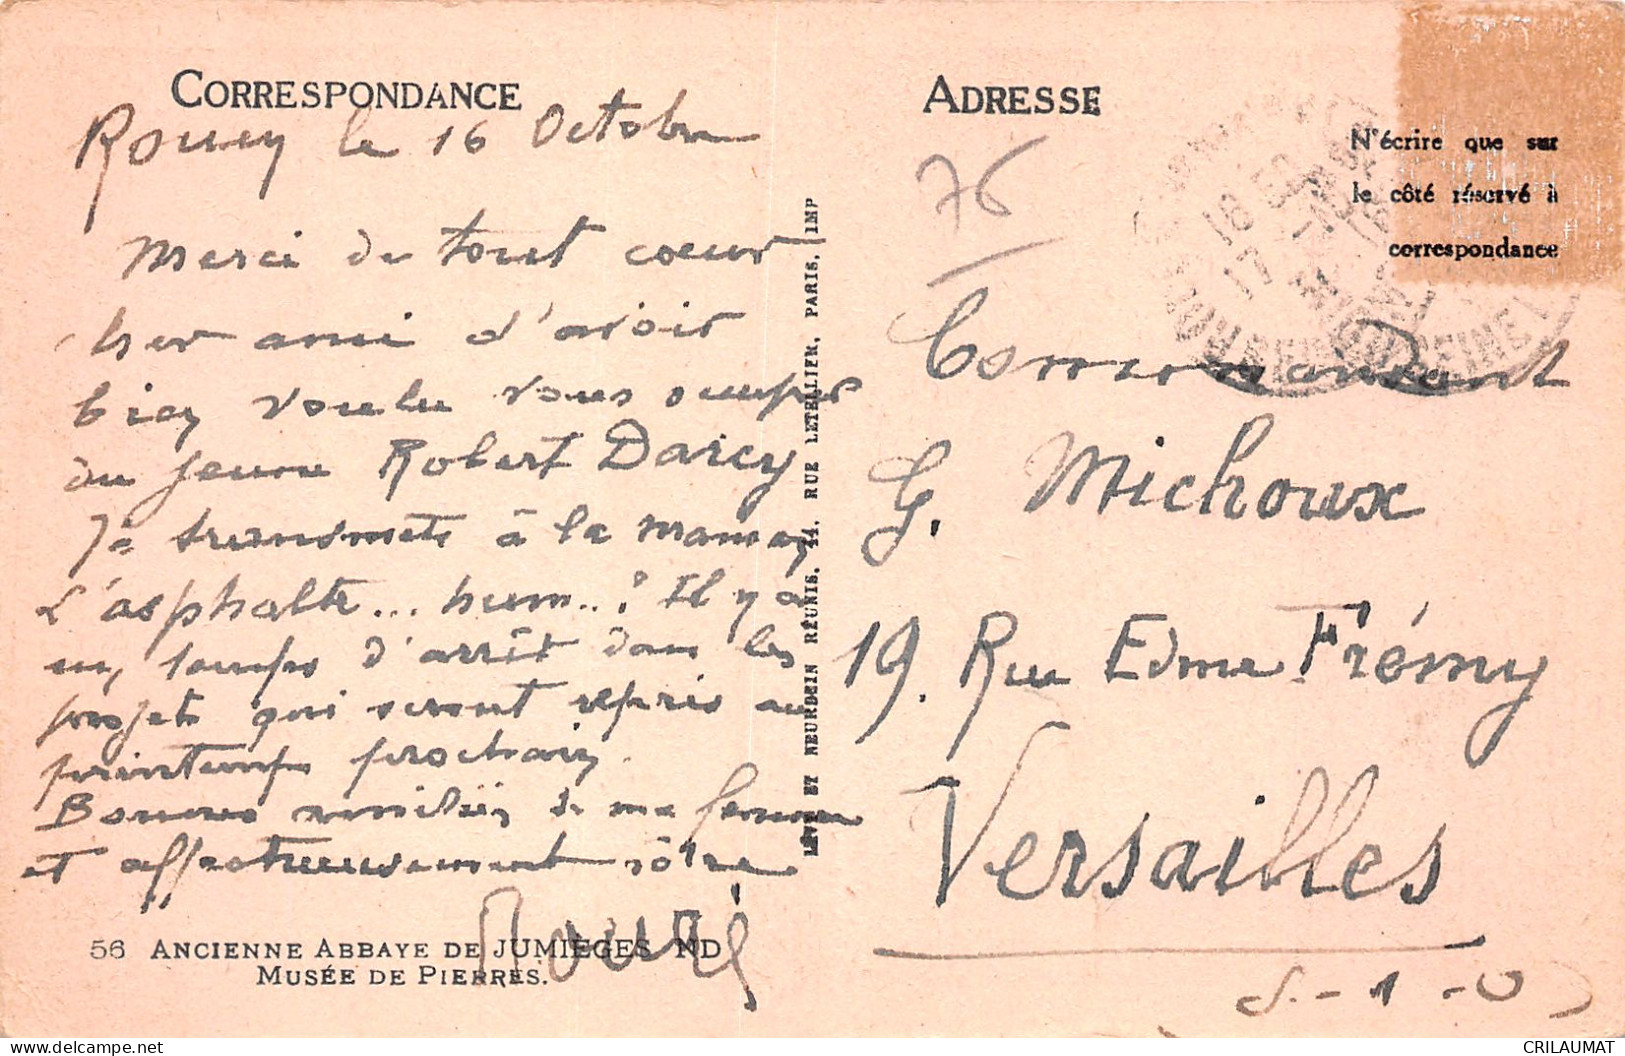 CORRESPONDANCE
Rouen le 16 Octobre
Merci de tout coeur
cher ami d'avoir
bien voulu vous occuper
du jeune Robert Darcy
Je transmets à la maman
L'asphalte... hum..! Il y a
un temps d'arrêt dans les
projets qui seront repris au
printemps prochain.
Bonnes amitiés de ma femme
et affectueusement vôtre
56 ANCIENNE ABBAYE DE JUMIÈGES ND
MUSÉE DE PIERRES.
LÉVY ET NEURDEIN RÉUNIS, 44, RUE LETELLIER, PARIS, IMP
ADRESSE
N'écrire que sur
le côté réservé à
correspondance
76
18 30
17
Commandant
G. Michoux
19. Rue Edme Frémy
Versailles
S.-1-O
www.delcampe.net
CRILAUMAT